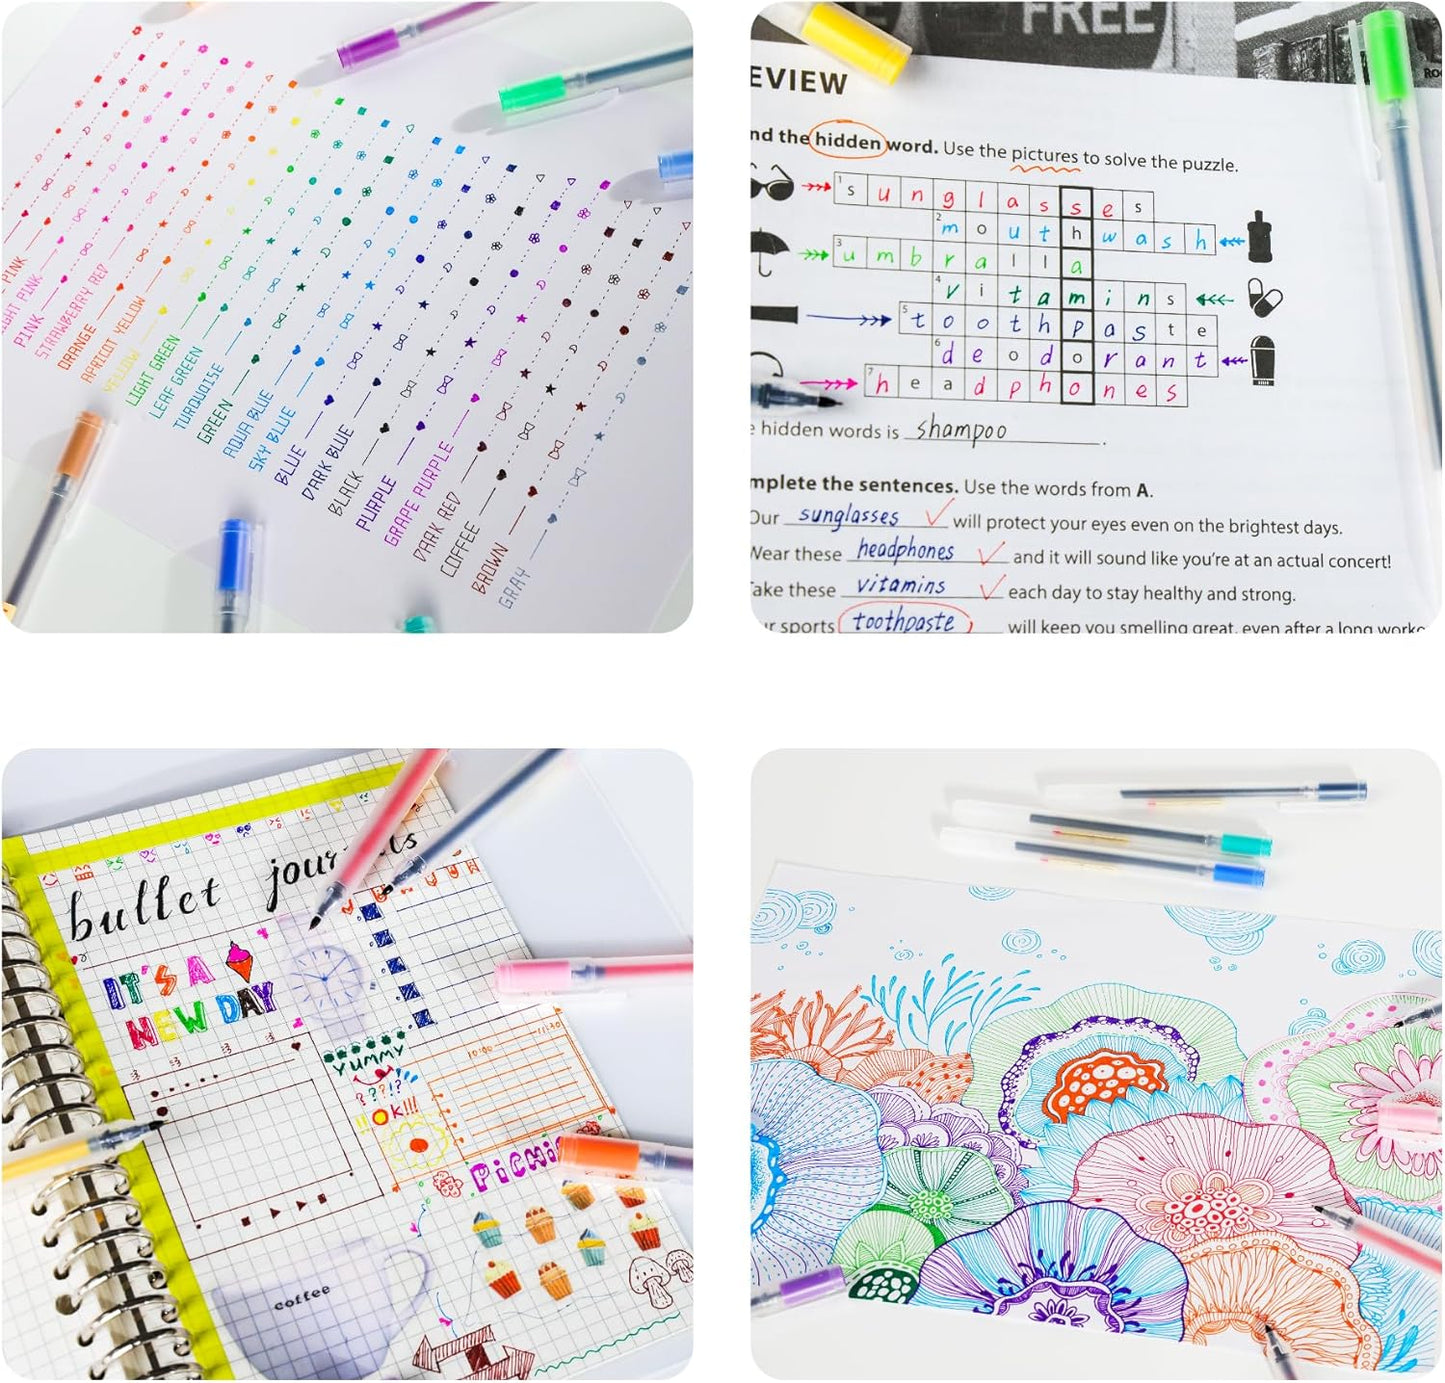 PINK
LIGHT PINK
PINK
STRAWBERRY RED
ORANGE
APRICOT YELLOW
YELLOW
LIGHT GREEN
LEAF GREEN
TURQUOISE
GREEN
AQUA BLUE
SKY BLUE
BLUE
DARK BLUE
BLACK
PURPLE
GRAPE PURPLE
DARK RED
COFFEE
BROWN
GRAY
FREE
EVIEW
nd the hidden word. Use the pictures to solve the puzzle.
1 sunglasses
2 mouthwash
3 umbralla
4 vitamins
5 toothpaste
6 deodorant
7 headphones
e hidden words is shampoo.
mplete the sentences. Use the words from A.
Our sunglasses will protect your eyes even on the brightest days.
Wear these headphones and it will sound like you're at an actual concert!
ake these vitamins each day to stay healthy and strong.
ur sports toothpaste will keep you smelling great, even after a long worko
bullet journals
IT'S A
NEW DAY
YUMMY
????!?
!! OK!!!
10:00
11:30
PiCNiC
coffee